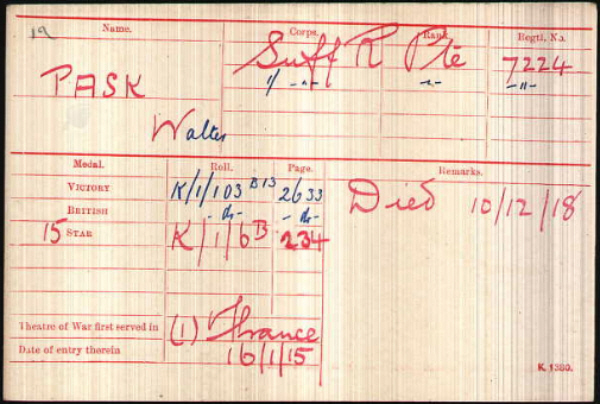 19
Name. Corps. Rank. Regtl. No.
PASK Suff R Pte 7224
Walter 1/ -"- -"- -"-
Medal. Roll. Page. Remarks.
VICTORY K/1/103 B13 2633 Died 10/12/18
BRITISH - do - - do -
15 STAR K/1/6B 234
Theatre of War first served in (1) France
Date of entry therein 16/1/15
K. 1380.